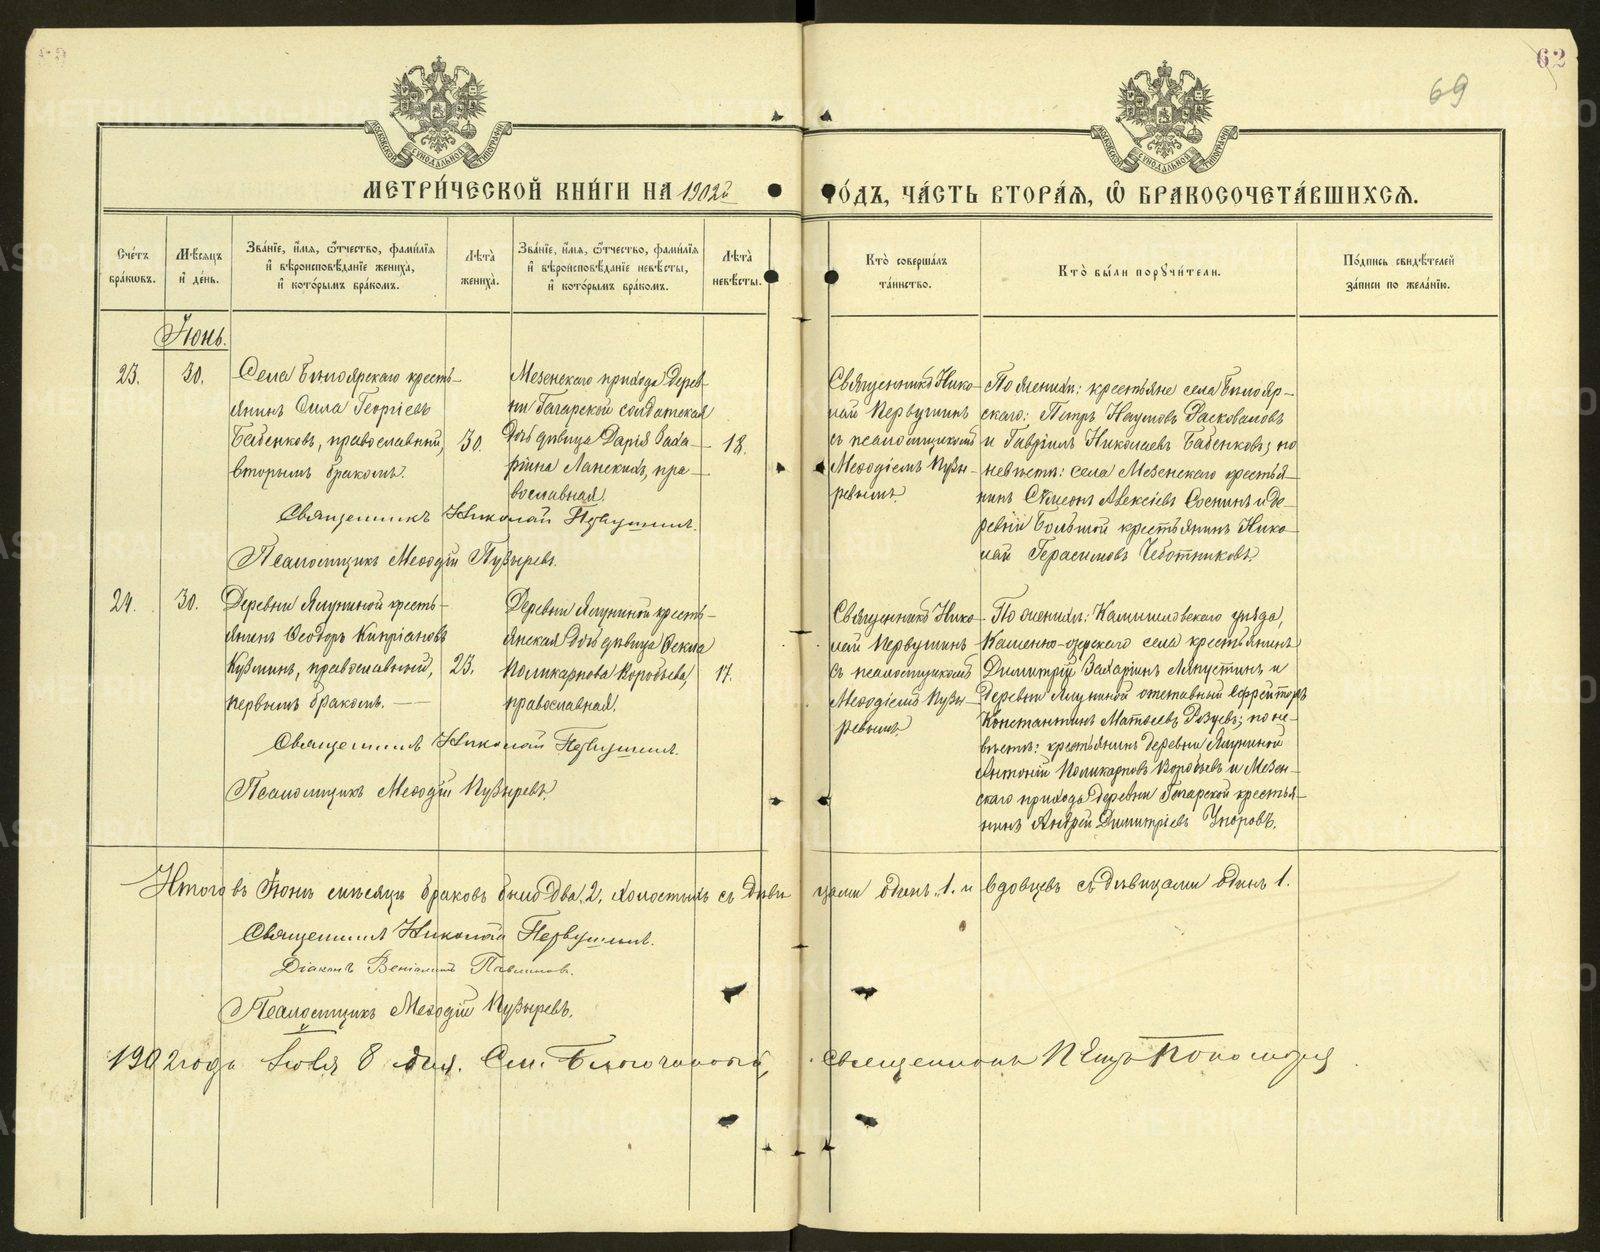 62
69
МОСКОВСКОЙ СѴНОДАЛЬНОЙ ТИПОГРАФІИ
МОСКОВСКОЙ СѴНОДАЛЬНОЙ ТИПОГРАФІИ
МЕТРИ́ЧЕСКОЙ КНИ́ГИ НА 1902й
ГО́ДЪ, ЧА́СТЬ ВТОРА́Я, Ѽ БРАКОСОЧЕТА́ВШИХСЯ.
Сче́тъ бра́кѡвъ.
Мѣ́сяцъ и де́нь.
Зва́нїе, и́мя, ѻ҆́тчество, фами́лїя и вѣроисповѣ́данїе жениха̀, и кото́рымъ бра́комъ.
Лѣта̀ жениха̀.
Зва́нїе, и́мя, ѻ҆́тчество, фами́лїя и вѣроисповѣ́данїе невѣ́сты, и кото́рымъ бра́комъ.
Лѣта̀ невѣ́сты.
Кто̀ соверша́лъ та́инство.
Кто̀ бы́ли порꙋчи́тели.
По́дпись свидѣ́телей за́писи по жела́нїю.
Іюнь.
23.
30.
Села Бѣлоярскаго кресть-
янинъ Сила Георгіевъ
Бабенковъ, православный,
вторымъ бракомъ.
30.
Мезенскаго прихода дерев-
ни Гагарской солдатская
дочь дѣвица Дарія Заха-
ріина Ланскихъ, пра-
вославная.
18.
Священникъ Нико-
лай Первушинъ
съ псаломщикомъ
Меѳодіемъ Пузы-
ревымъ.
По женихѣ: крестьяне села Белояр-
скаго: Петръ Наумовъ Расковаловъ
и Гавріилъ Николаевъ Бабенковъ; по
невѣстѣ: села Мезенскаго крестья-
нинъ Симеонъ Алексіевъ Соснинъ и де-
ревни Большой крестьянинъ Нико-
лай Герасимовъ Чеботниковъ.
Священникъ Николай Первушинъ.
Псаломщикъ Меѳодій Пузыревъ.
24.
30.
Деревни Ялуниной кресть-
янинъ Ѳеодоръ Кипріановъ
Кузминъ, православный,
первымъ бракомъ.
23.
Деревни Ялуниной кресть-
янская дочь дѣвица Ѳекла
Поликарпова Воробьева,
православная.
17.
Священникъ Нико-
лай Первушинъ
съ псаломщикомъ
Меѳодіемъ Пузы-
ревымъ.
По женихѣ: Камышловскаго уѣзда,
Каменно-озерскаго села крестьянинъ
Димитрій Захаріинъ Ляпустинъ и
деревни Ялуниной отставный ефрейторъ
Константинъ Матвеевъ; по не-
вѣстѣ: крестьянинъ деревни Ялуниной
Антоній Поликарповъ Воробьевъ и Мезен-
скаго прихода деревни Гагарской крестья-
нинъ Андрей Димитріевъ Упоровъ.
Священникъ Николай Первушинъ.
Псаломщикъ Меѳодій Пузыревъ.
Итого въ Іюнѣ мѣсяцѣ браковъ было два, 2, холостыхъ съ дѣви
цами одинъ, 1. и вдовцевъ съ дѣвицами одинъ 1.
Священникъ Николай Первушинъ.
Діаконъ Веніаминъ Павлиновъ.
Псаломщикъ Меѳодій Пузыревъ.
1902 года Іюля 8 дня. См. Благочинный,
священникъ Петръ Пономаревъ